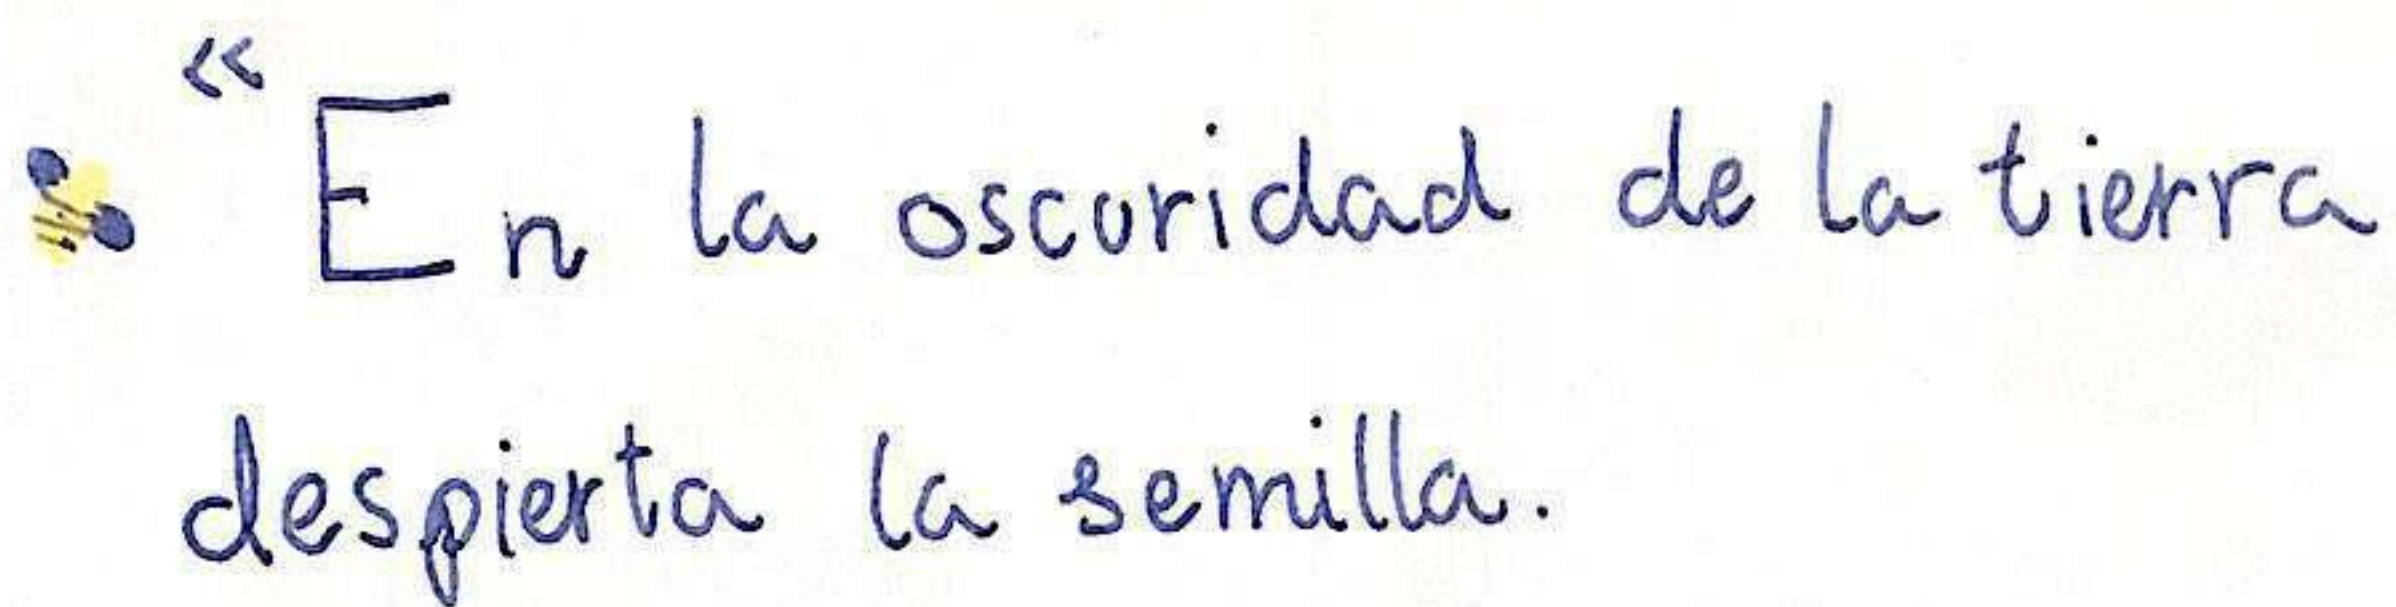 “En la oscuridad de la tierra
despierta la semilla.